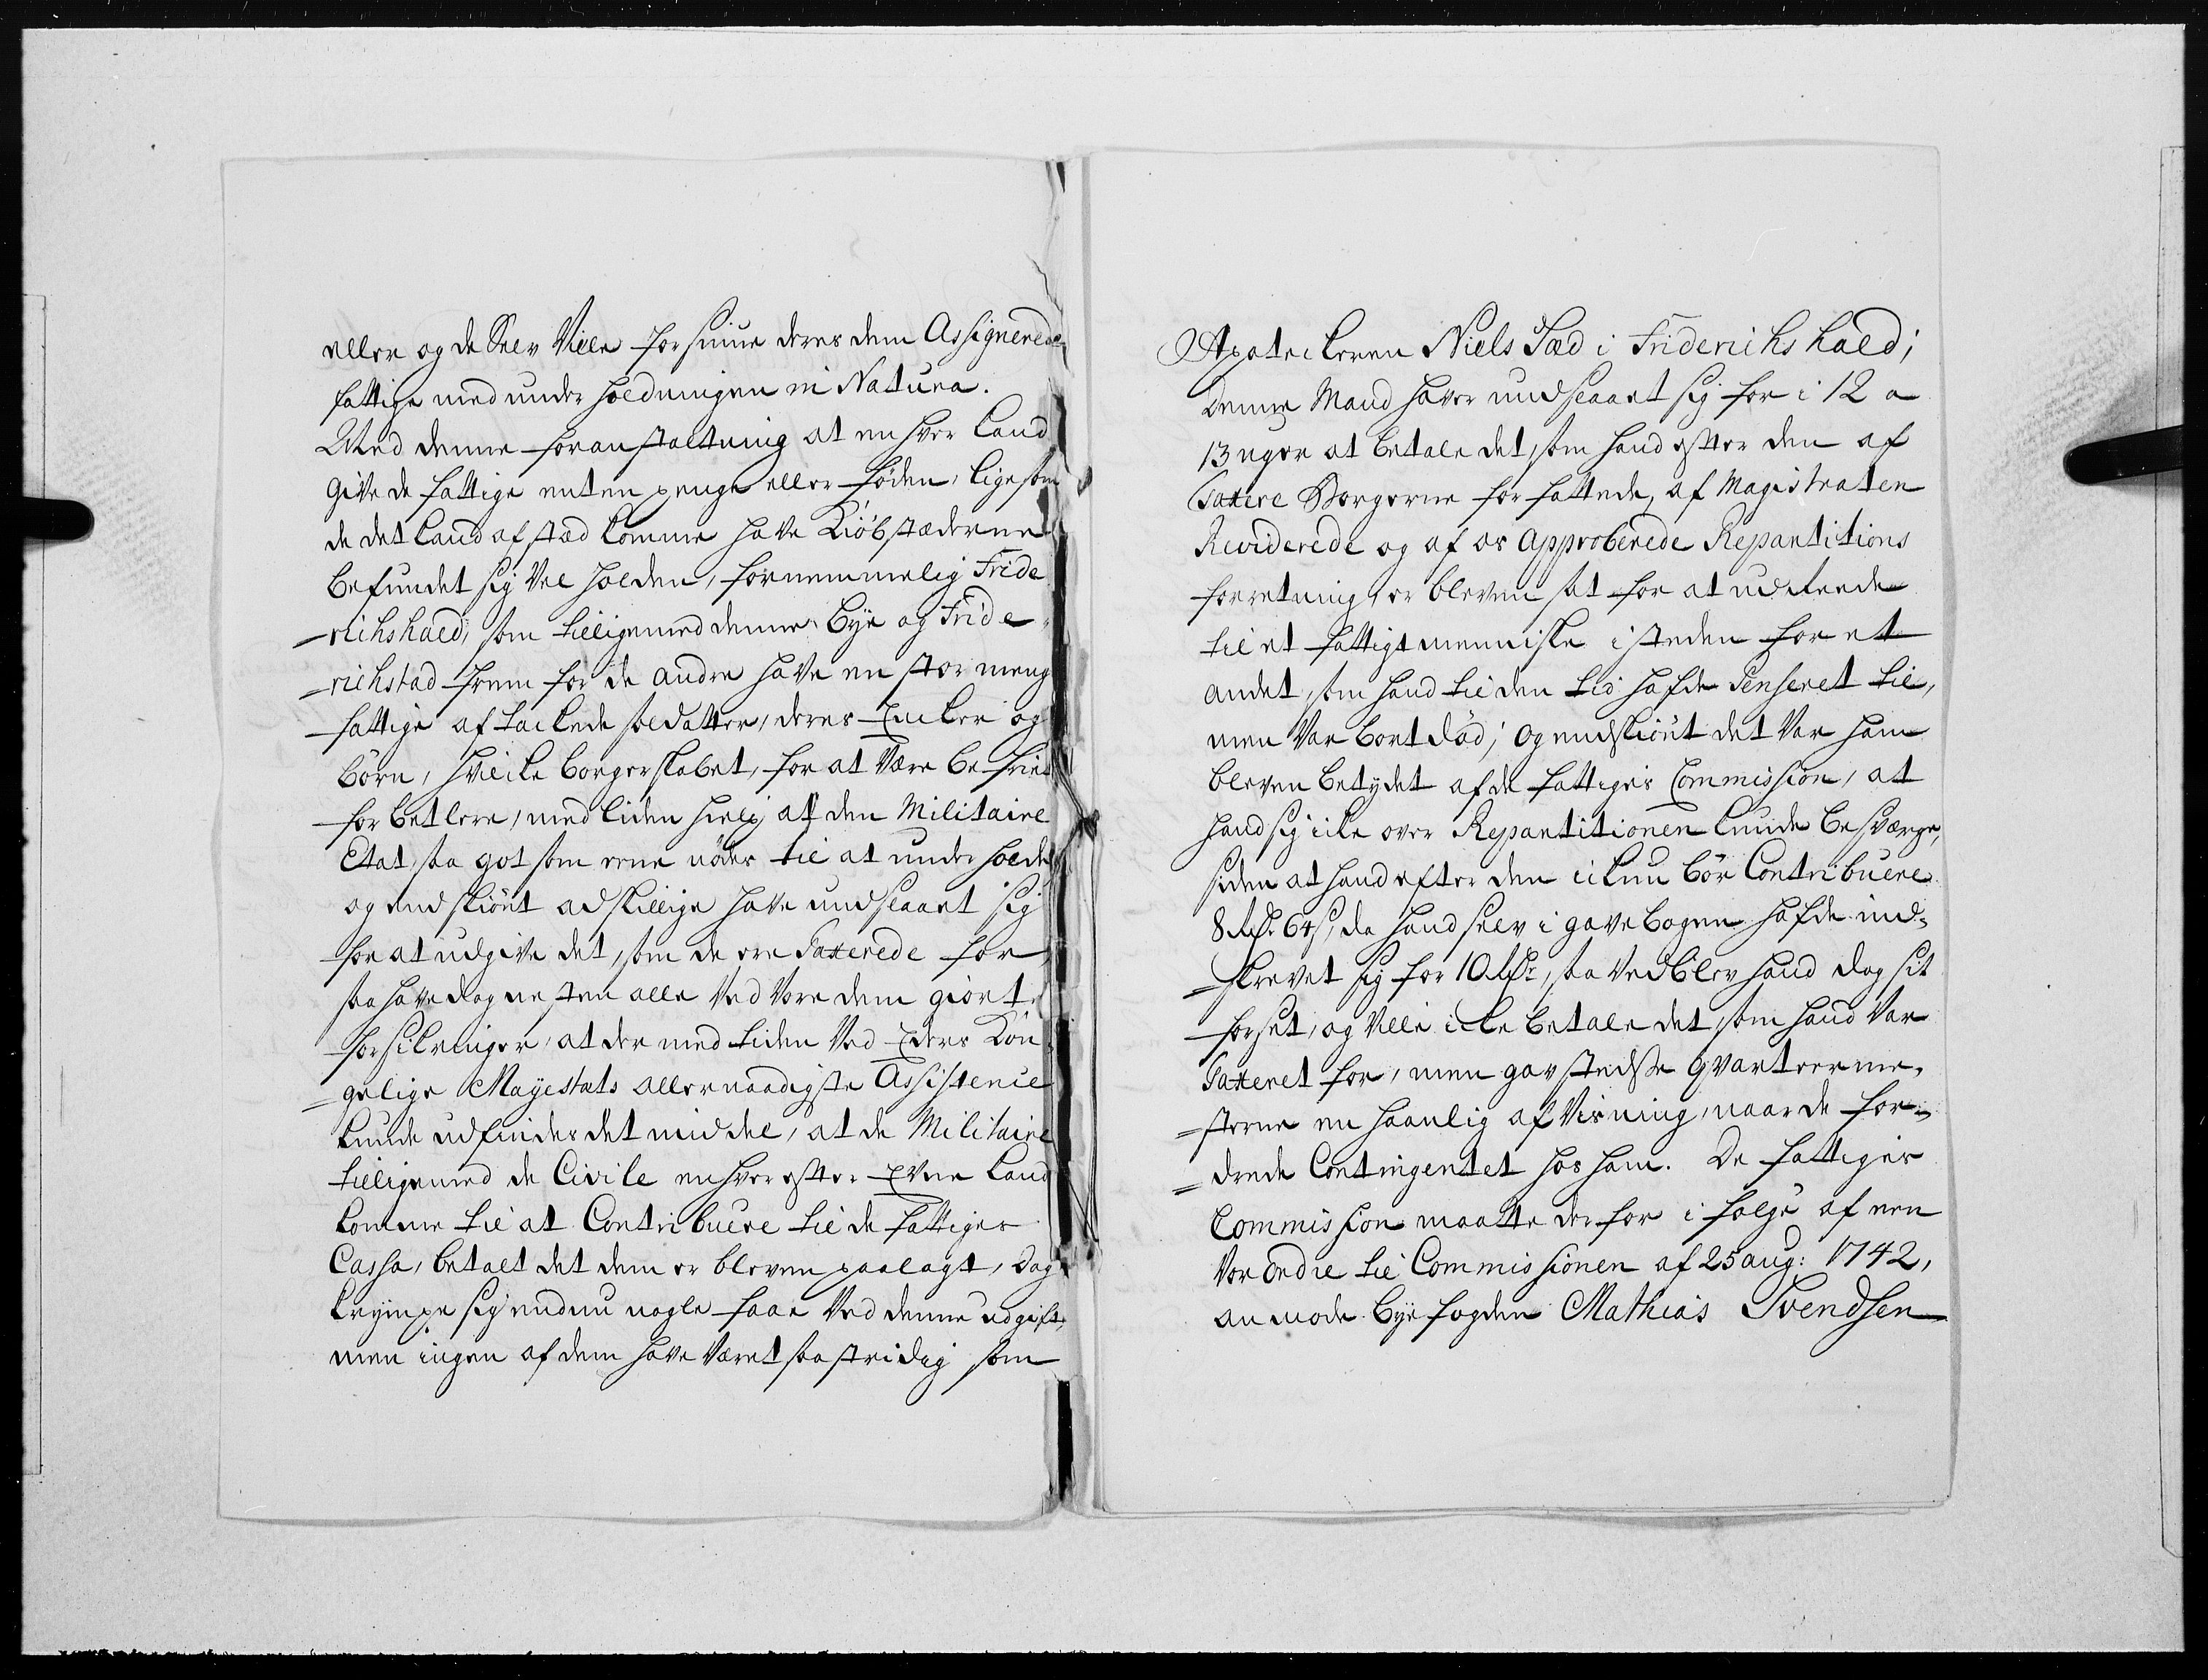 eller og de Selv Ville forsiune deres dem Assignerede
fattige med underholdningen in Natura.
Med denne foranstaltning at enhver kand
give de fattige enten penge eller föden, ligesom
de det kand afsted komme have Kiöbstæderne
befundet sig vel holden, fornemmelig Fride
richshald, som tilligemed denne Bye og Fride
richstad frem for de andre have en stor mengde
fattige aftackede soldatter, deres Encker og
börn, hvilcke borgerskabet, for at være befriet
for betlere, med liden hielp af den Militaire
Etat, saa got som ene nödes til at underholde
og endskiönt adskillige have undslaaet sig
for at udgive det, som de ere Taxerede for
saa have dog nesten alle Ved Vore dem giorte
forsikringer, at der med tiden Ved Eders Kon-
gelige Mayestæts allernaadigste Assistence
kunde udfindes det middel, at de Militaire
tilligemed de Civile enhver efter Evne kand
komme til at Contribuere til de fattiges
Cassa, betalt det dem er bleven paalagt, Dog
krympe sig endnu nogle faae Ved denne udgift,
men ingen af dem have Været saa stridig som
Apoteckeren Niels Sæd i Friderichshald;
Denne Mand haver undslaaet sig for i 12 a
13 uger at betale det, som hand efter den af
Taxere Borgerne forfattede, af Magistraten
Reviderede og af os Approberede Repartitions
forretning, er bleven sat for at udreede
til et fattigt menniske i steden for et
andet, som hand til den tid hafde Censeret til,
men Var bortdöd; og endskiönt det Var ham
bleven betydet af de fattiges Commission, at
hand sig icke over Repartitionen kunde besværge,
siden at hand efter den ickun bör Contribuere
8 Rdr 64 s, da hand selv i gavebogen hafde ind-
skrevet sig for 10 Rdr, saa Vedblev hand dog sit
forset, og Ville icke betale det, som hand Var
Taxeret for, men gav stedse Qvarteerme-
sterne en haanlig afvisning, naar de for-
drede Contingentet hos ham. De fattiges
Commission maatte derfor i fölge af een
Vor Ordre til Commissionen af 25 aug: 1742,
anmode byefogden Mathias Svendsen